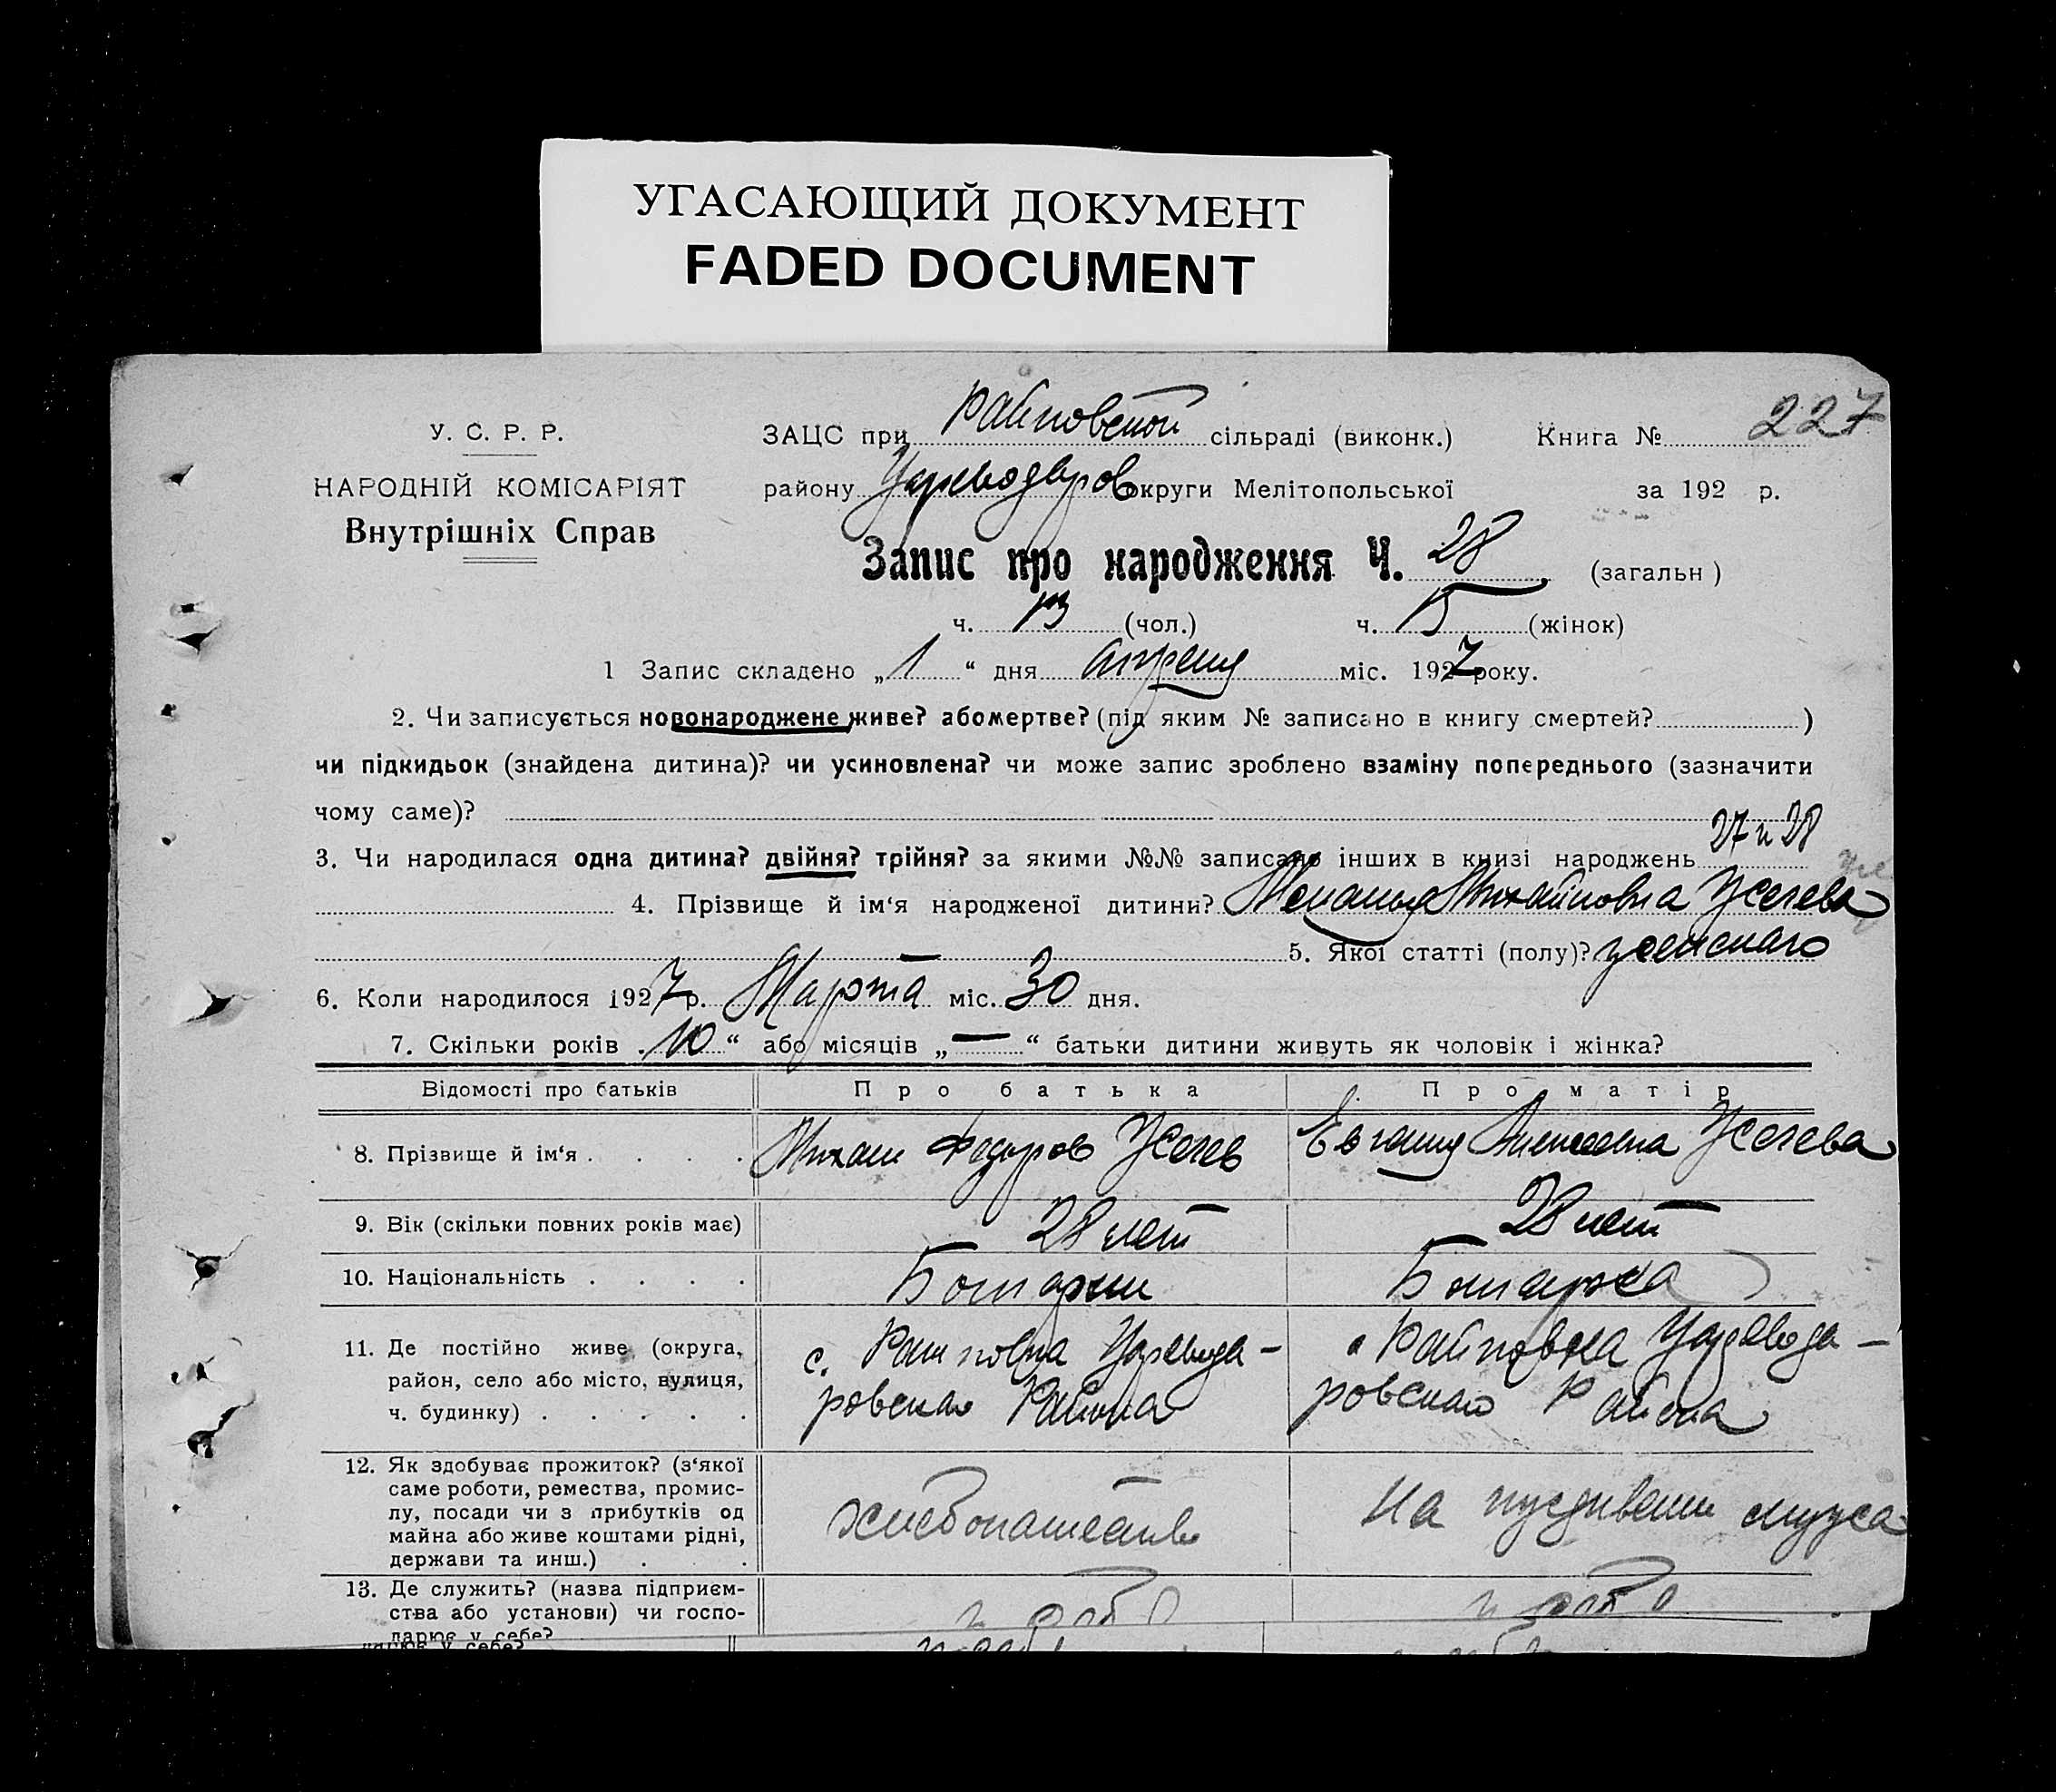 УГАСАЮЩИЙ ДОКУМЕНТ
FADED DOCUMENT
У. С. Р. Р.
НАРОДНІЙ КОМІСАРІЯТ
Внутрішніх Справ
ЗАЦС при Райновской сільраді (виконк.) Книга № 227
району Цареводаров округи Мелітопольської за 192 р.
Запис про народження Ч. 28 (загальн )
ч. 13 (чол.) ч. 15 (жінок)
1 Запис складено „1“ дня апреля міс. 1927 року.
2. Чи записується новонароджене живе? або мертве? (під яким № записано в книгу смертей? )
чи підкидьок (знайдена дитина)? чи усиновлена? чи може запис зроблено взаміну попереднього (зазначити
чому саме)?
3. Чи народилася одна дитина? двійня? трійня? за якими №№ записано інших в книзі народжень 27 и 28
4. Прізвище й ім‘я народженої дитини? Михайловна
5. Якої статті (полу)? женскаго
6. Коли народилося 1927 р. Марта міс. 30 дня.
7. Скільки років „10“ або місяців „—“ батьки дитини живуть як чоловік і жінка?
Відомості про батьків Про батька Про матір
8. Прізвище й ім‘я . . . . Михаил Федоров Евгения
9. Вік (скільки повних років має) 28 лет 28 лет
10. Національність . . . . Болгарин Болгарка
11. Де постійно живе (округа, с. Райновка Царевода- Райновка Царевода-
район, село або місто, вулиця, ровскаго Района ровскаго Района
ч. будинку) . . . . .
12. Як здобуває прожиток? (з‘якої
саме роботи, ремества, промис-
лу, посади чи з прибутків од хлебопашество На иждивении мужа
майна або живе коштами рідні,
держави та инш.) . .
13. Де служить? (назва підприєм-
ства або установи) чи госпо-
дарює у себе?